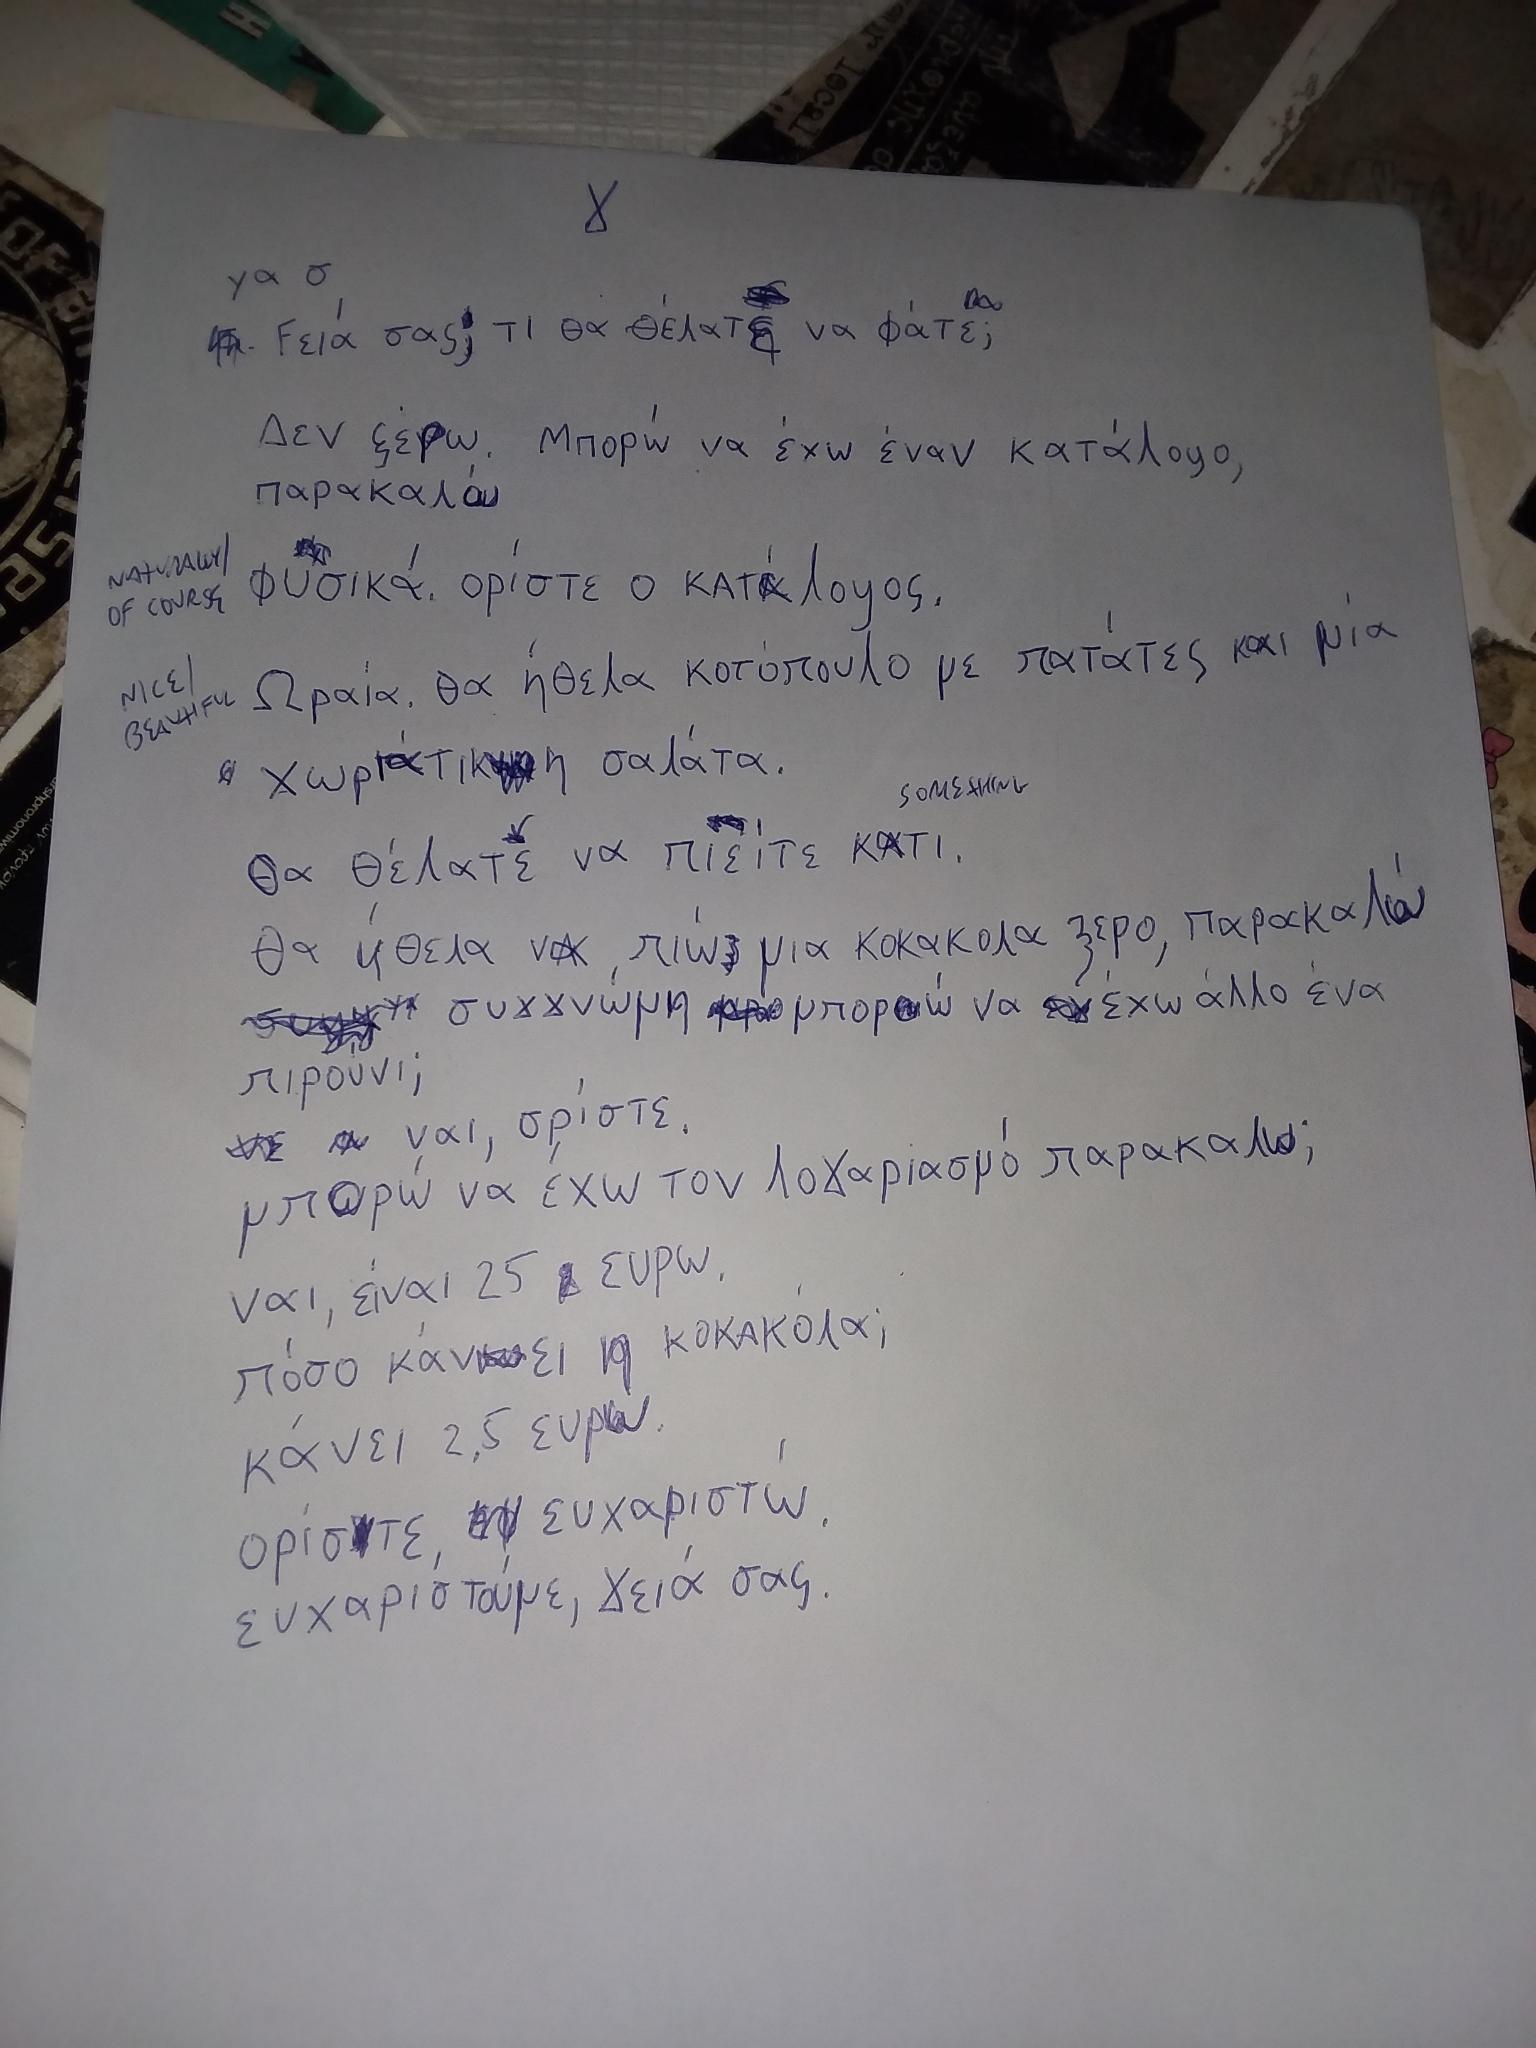 γ
γα σ
Γειά σας, τι θα θέλατε να φάτε;
Δεν ξέρω. Μπορώ να έχω έναν κατάλογο,
παρακαλώ
NATURALLY/
OF COURSE
Φυσικά. ορίστε ο κατάλογος.
NICE/
BEAUTIFUL
Ωραία. θα ήθελα κοτόπουλο με πατάτες και μία
χωριάτικη σαλάτα.
SOMETHING
Θα θέλατε να πιείτε κάτι.
Θα ήθελα να πιώ μια κοκακολα ζερο, παρακαλώ
συγγνώμη μπορώ να έχω άλλο ένα
πιρούνι;
ναι, ορίστε.
μπορώ να έχω τον λογαριασμό παρακαλω;
ναι, είναι 25 ευρω.
πόσο κάνει η κοκακόλα;
κάνει 2,5 ευρω.
ορίστε, ευχαριστώ.
ευχαριστούμε, γειά σας.